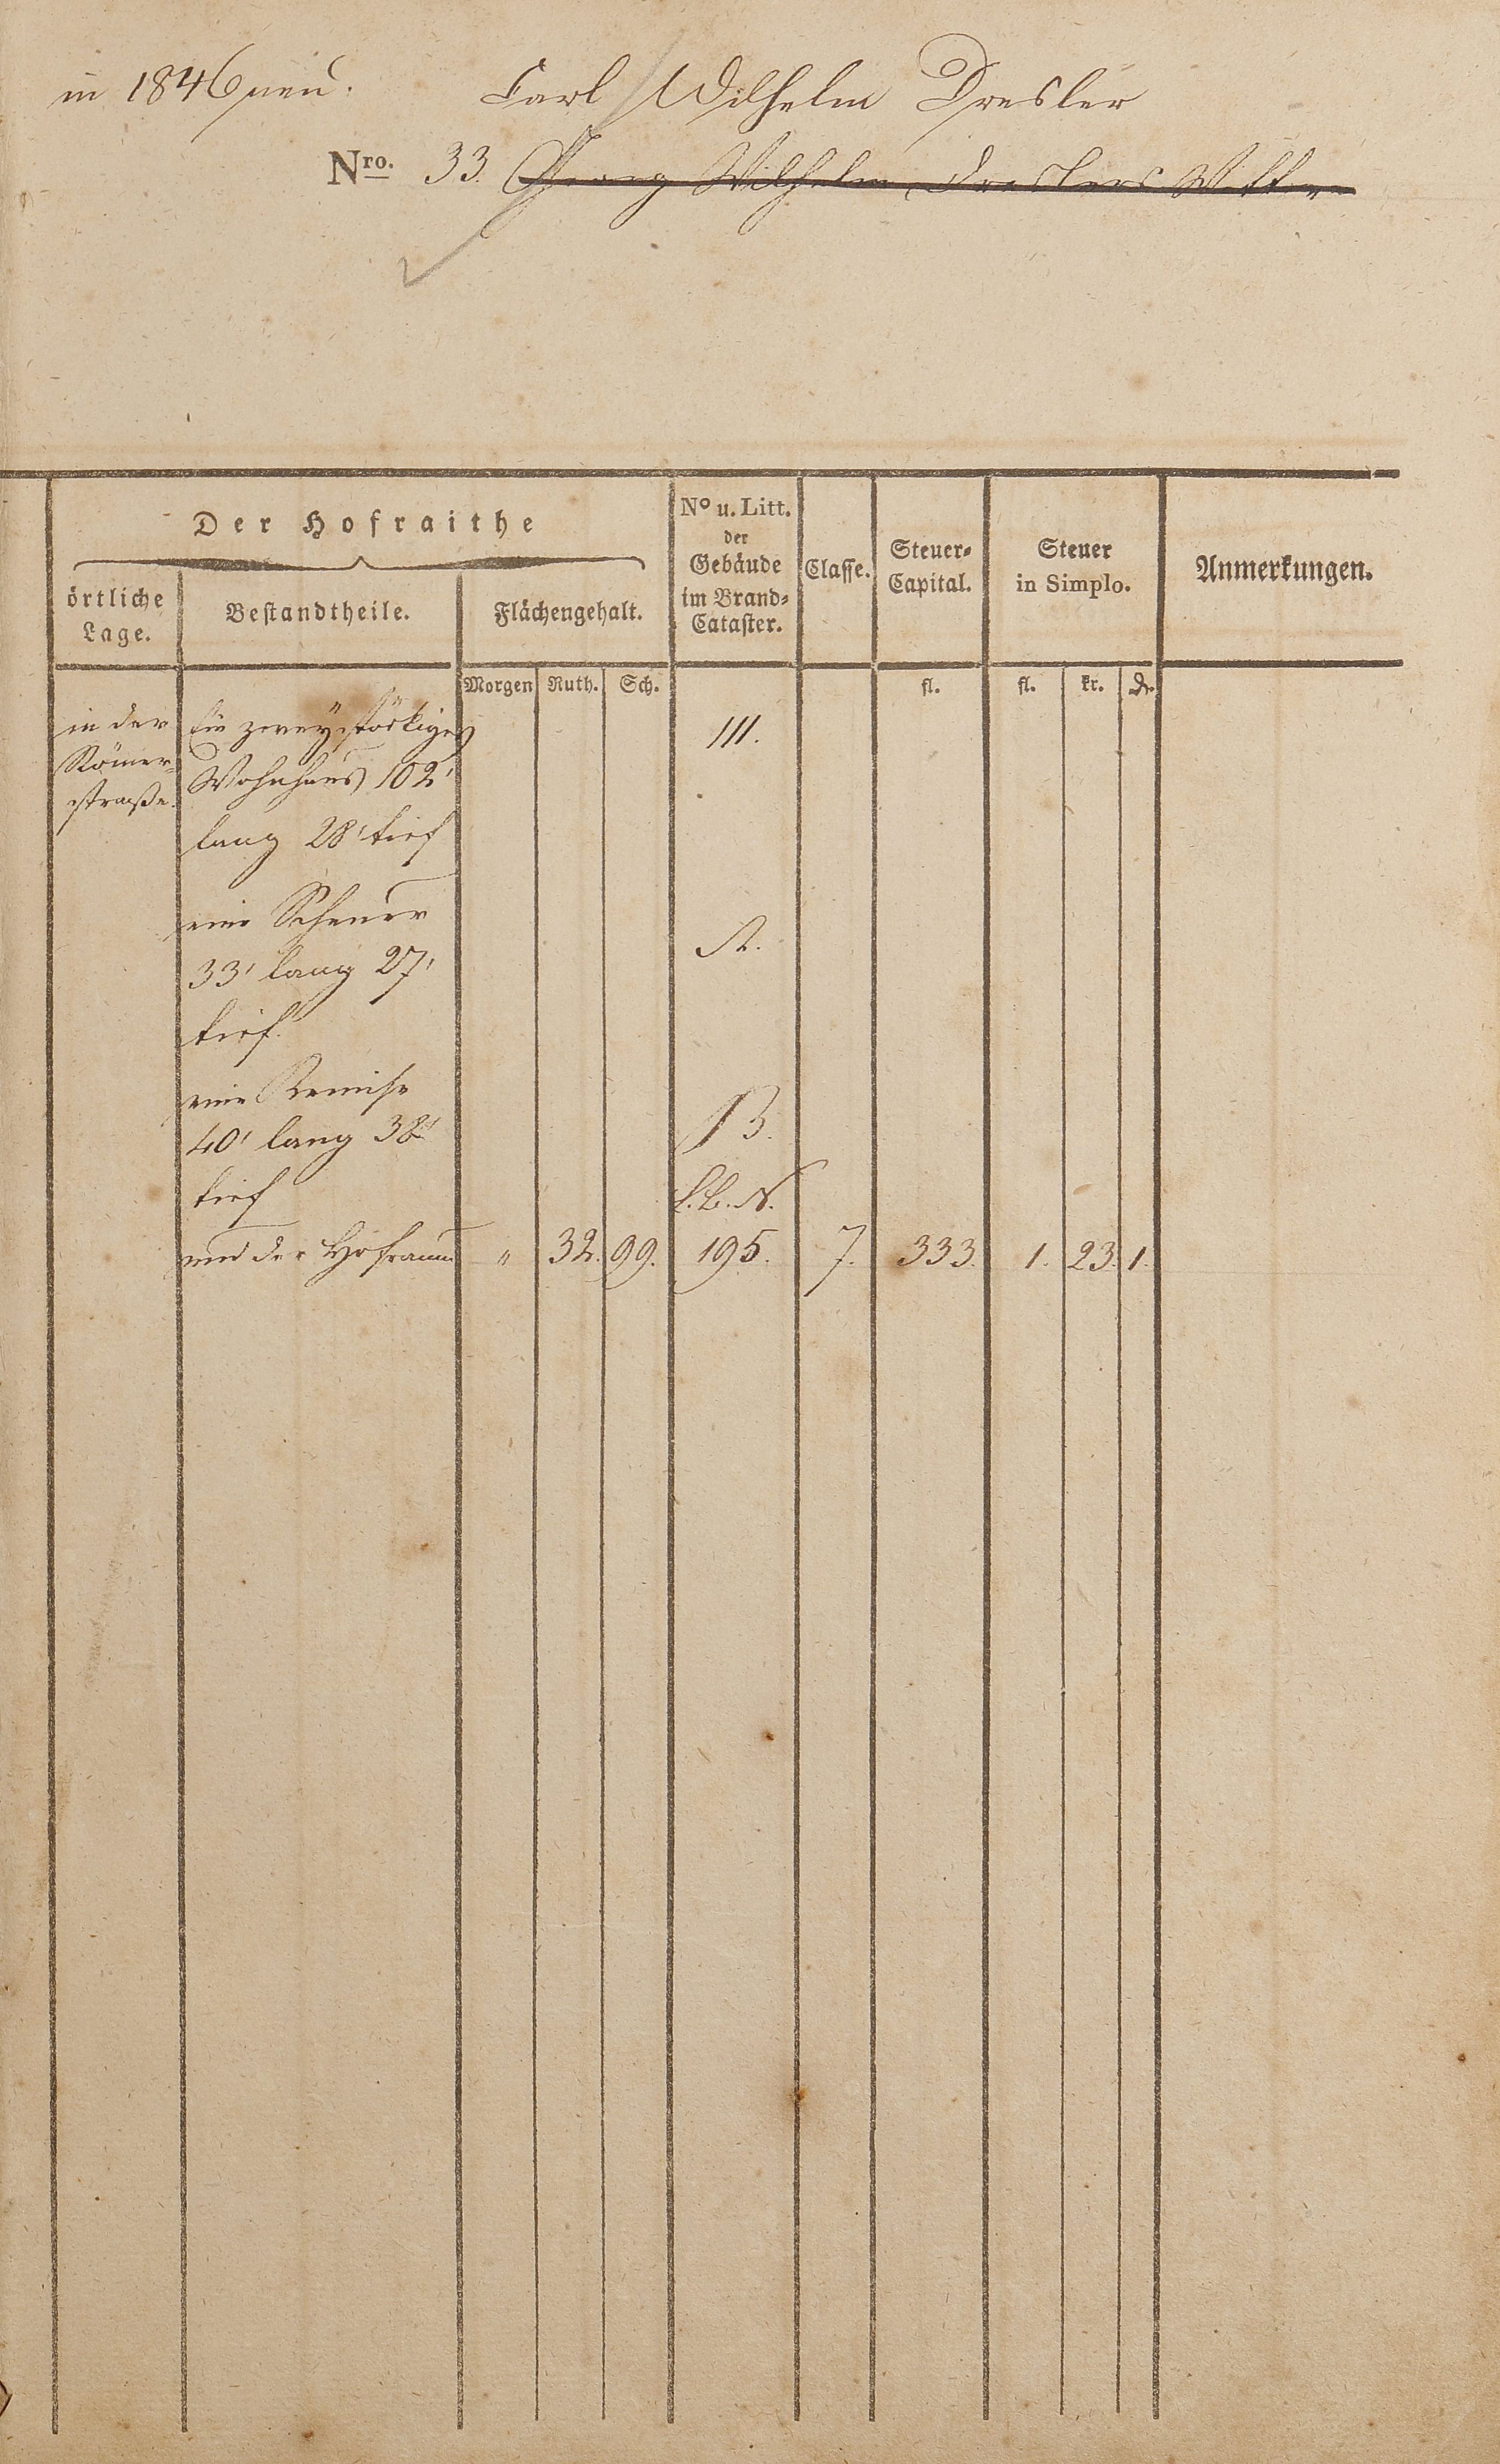 in 1846 neu.
Carl Wilhelm Dresler
Nro. 33. Georg Wilhelm Dreslers Wittwe
Der Hofraithe
örtliche
Lage.
Bestandtheile.
Flächengehalt.
No u. Litt.
der
Gebäude
im Brand-
Cataster.
Classe.
Steuer-
Capital.
Steuer
in Simplo.
Anmerkungen.
Morgen Ruth. Sch. fl. fl. kr.
in der
Römer-
straße.
Ein zweystöckiges
Wohnhaus 102'
lang 28' tief
111.
eine Scheuer
33' lang 27'
tief.
A.
eine Remise
40' lang 32'
tief
B.
L.B.N.
und der Hofraum " 32. 99. 195. 7. 333. 1. 23. 1.